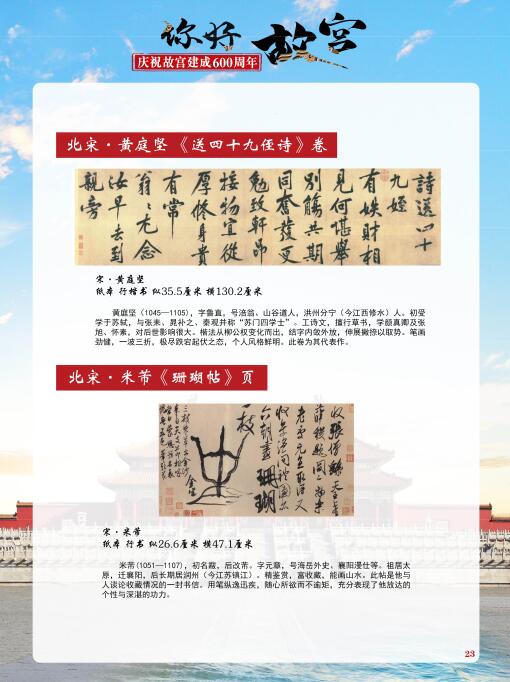 你好 故宫
庆祝故宫建成600周年
北宋·黄庭坚《送四十九侄诗》卷
詩送四十
九姪
有妷財相
見何堪舉
別觴共期
同奮發更
勉致軒昂
接物宜從
厚修身貴
有常
翁翁尤念
汝早去到
親旁
宋·黄庭坚
纸本 行楷书 纵35.5厘米 横130.2厘米
黄庭坚（1045—1105），字鲁直，号涪翁、山谷道人，洪州分宁（今江西修水）人。初受
学于苏轼，与张耒、晁补之、秦观并称“苏门四学士”。工诗文，擅行草书，学颜真卿及张
旭、怀素，对后世影响很大。楷法从柳公权变化而出，结字内敛外放，伸展撇捺以取势。笔画
劲健，一波三折，极尽跌宕起伏之态，个人风格鲜明。此卷为其代表作。
北宋·米芾《珊瑚帖》页
收張僧繇天王
薛稷題閣二物乎
老李元直取得又
收景溫問禮圖亦
六朝畫珊瑚
一枝
金坐
宋·米芾
纸本 行书 纵26.6厘米 横47.1厘米
米芾（1051—1107），初名黻，后改芾。字元章，号海岳外史、襄阳漫仕等。祖居太
原，迁襄阳，后长期居润州（今江苏镇江）。精鉴赏，富收藏，能画山水。此帖是他与
人谈论收藏情况的一封书信。用笔纵逸迅疾，随心所欲而不逾矩，充分表现了他放达的
个性与深湛的功力。
23